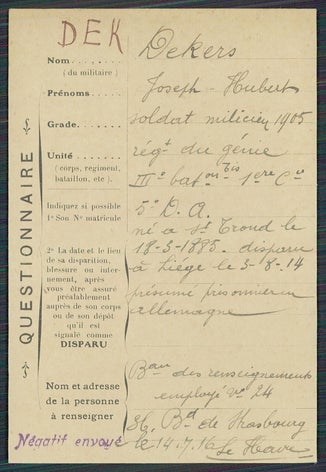 DEK
Nom....... Dekers
(du militaire)
Prénoms....... Joseph - Hubert
Grade....... soldat milicien 1905
Unité....... régt du génie
(corps, regiment, bataillon, etc). IIIe baton 1ere Cie
Indiquez si possible
1° Son No matricule
5e D. A.
né à St Trond le
18-5-1885. disparu
à Liége le 5-8-14
présumé prisonnier en
allemagne
QUESTIONNAIRE
2° La date et le lieu
de sa disparition,
blessure ou inter-
nement, après
vous être assuré
préalablement
auprès de son corps
ou de son dépôt
qu'il est
signalé comme
DISPARU
Nom et adresse
de la personne
à renseigner
Beau des renseignements
employé No 24
36, Bd de Strasbourg
le 14.7.16 Le Havre
Négatif envoyé